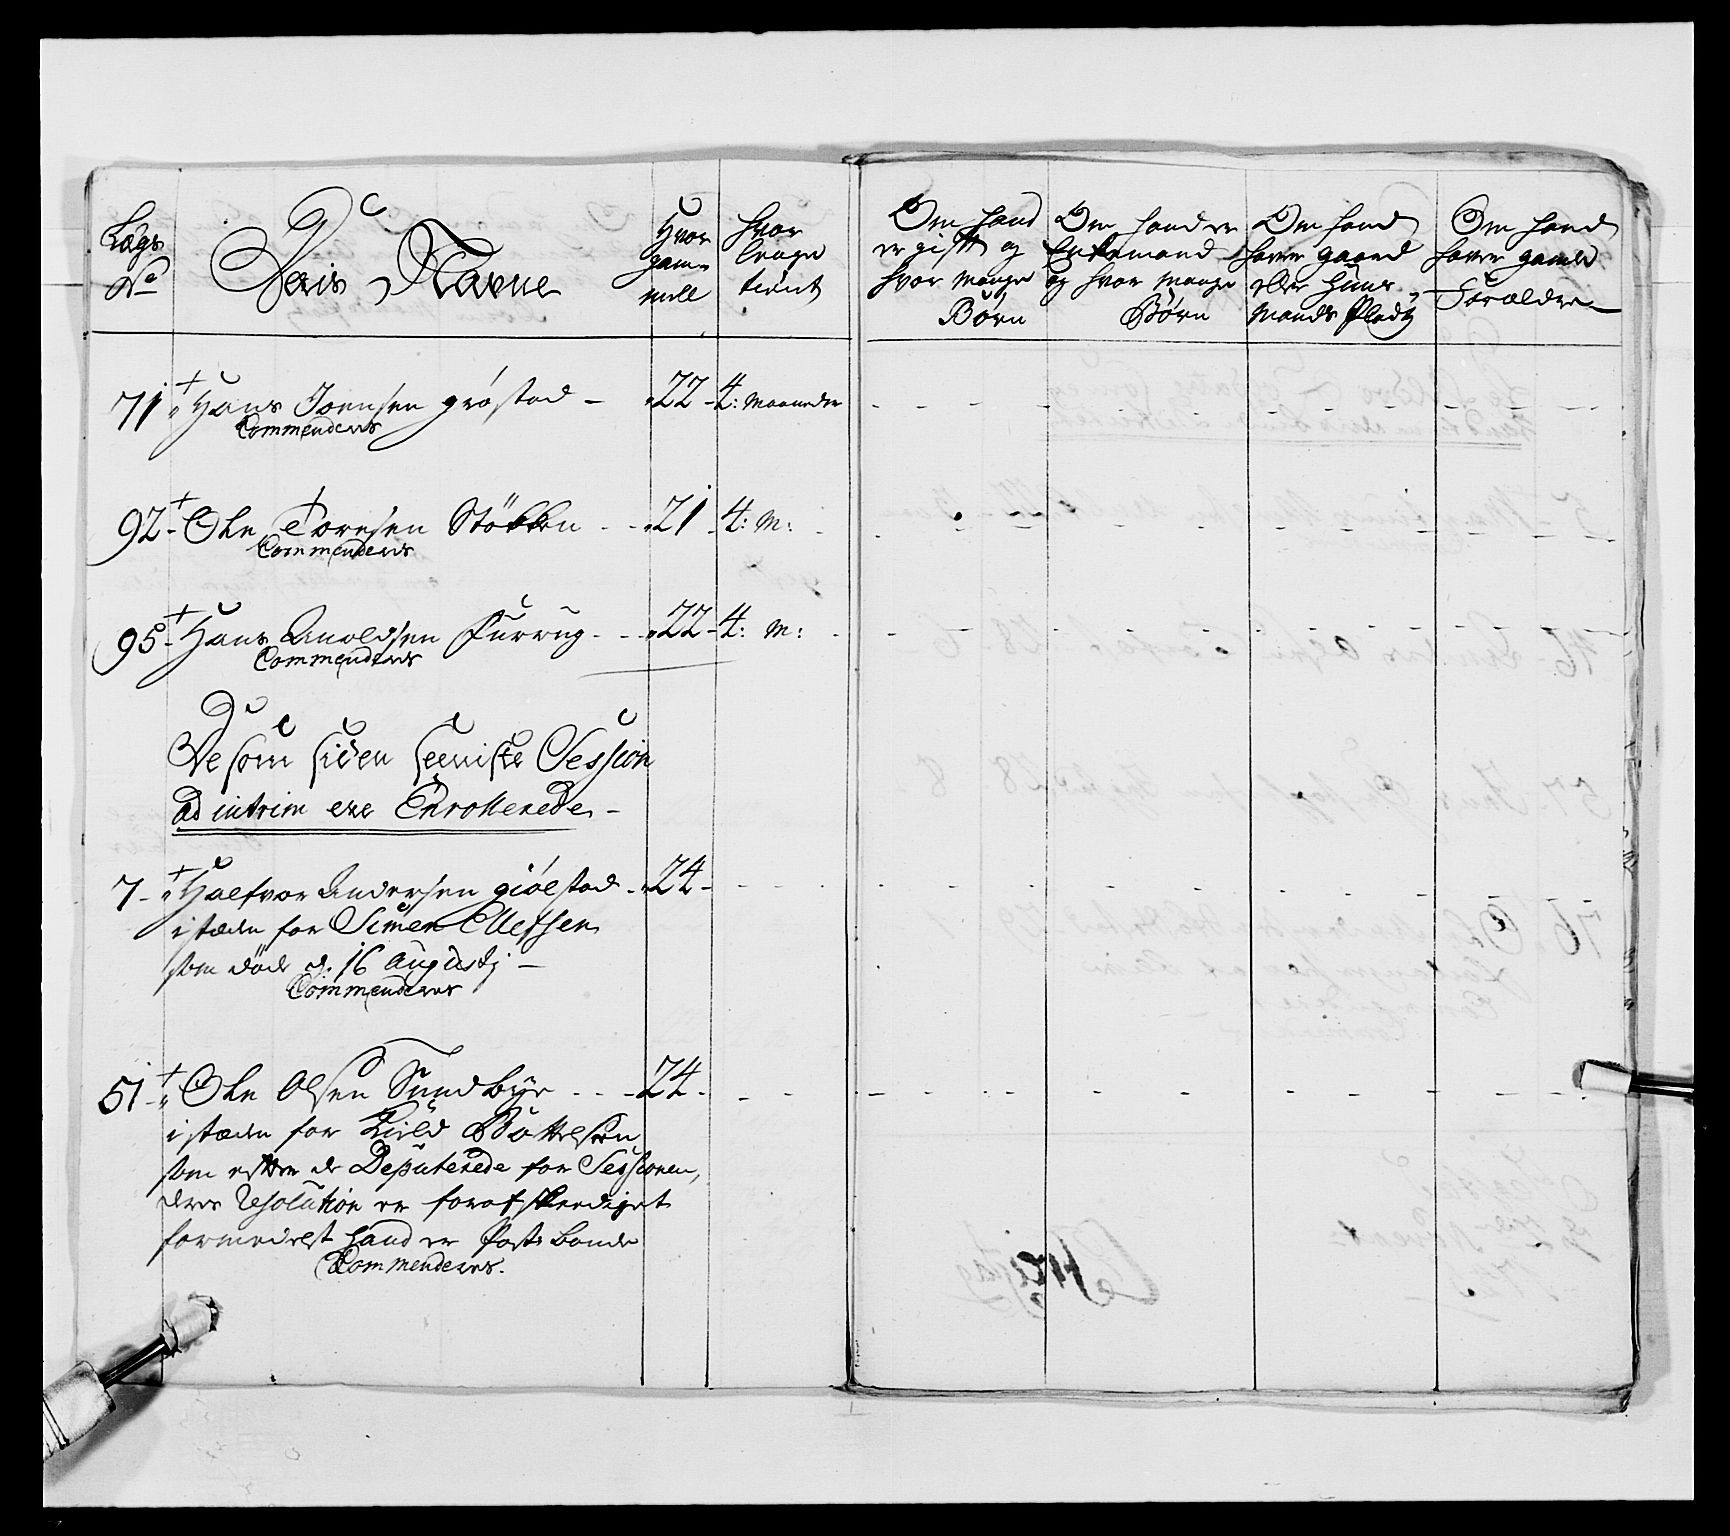 Lægs
No
Deris Navne
Hvor
gam-
mell
hvor
lenge
tient
Om hand
er gift og
hvor mange
Børn
Om hand er
Enkemand
og hvor mange
Børn
Om hand
haver gaard
eller huus-
mands Pladtz
Om hand
haver gamle
Forældre
71 + Hans Joensen grøstad - 22 - 4: maaneder
Commenderes
92 + Ole Toresen Støkken - 21 - 4: M:
Commenderes
95 + Hans Anoldsen Furrug - 22 - 4: M:
Commenderes
De som siden seeniste Session
ad intrim ere Enrollerede
7 - + Halfvor Andersen giølstad - 24 -
i stæden for Simen Ellefsen
som døde d. 16 Augustj -
Commenderes
51 + Ole Olsen Sundbye - - - 24 -
i stæden for Kield Bottelsen
som efter de Deputerede for Sessionen,
deres Resolution er forafskeediget
formedelst hand er Post bonde
Commenderes.